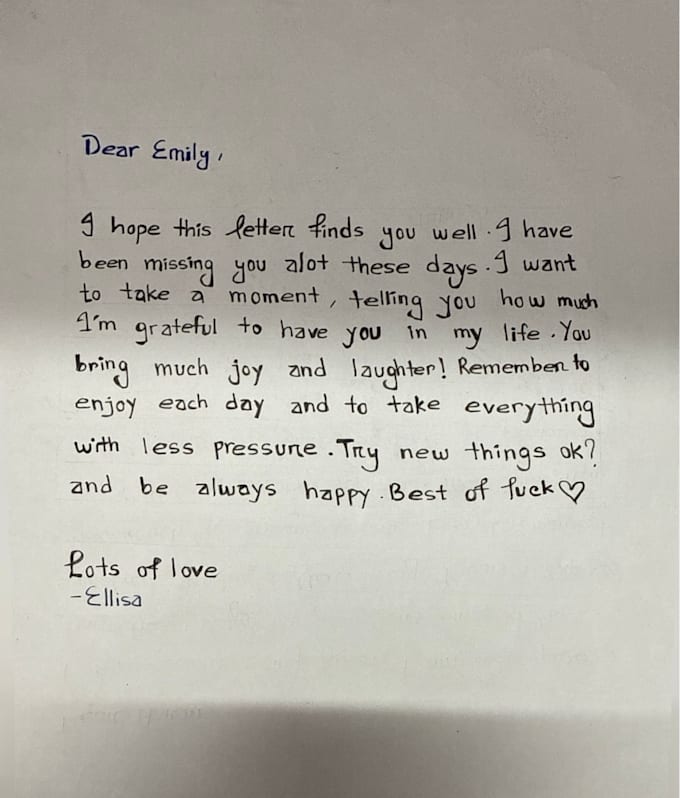 Dear Emily,
I hope this letter finds you well. I have
been missing you alot these days. I want
to take a moment, telling you how much
I'm grateful to have you in my life. You
bring much joy and laughter! Remember to
enjoy each day and to take everything
with less pressure. Try new things ok?
and be always happy. Best of luck♡
Lots of love
-Ellisa